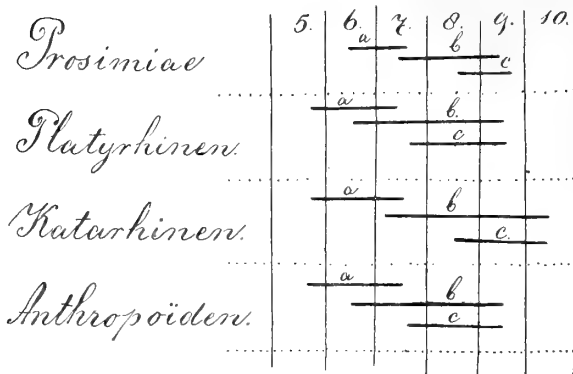 5. 6. 7. 8. 9. 10.
a
Prosimiae b
c
a
Platyrhinen. b.
c
a
Katarhinen. b
c.
a
Anthropoïden. b
c